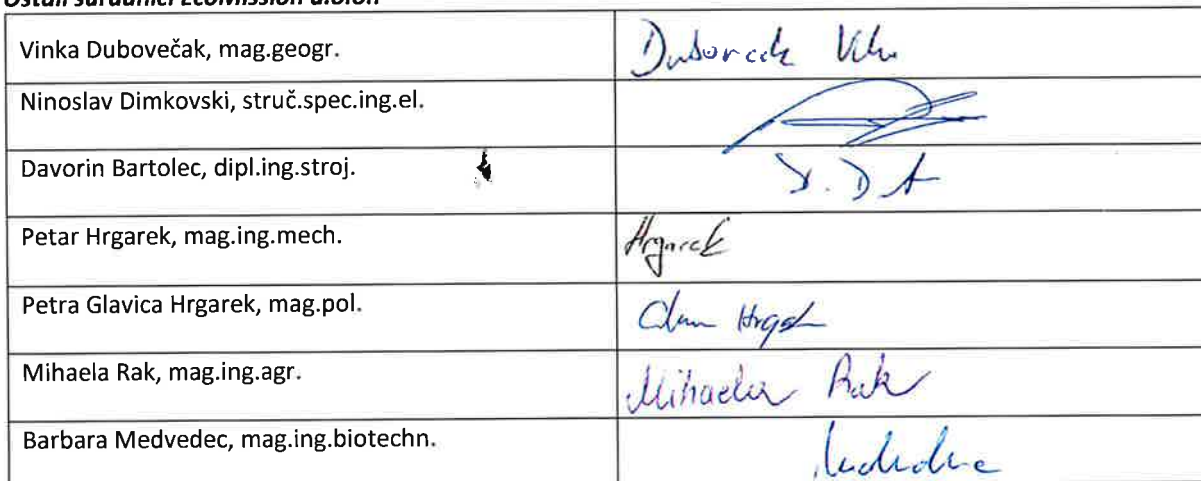 Ostali suradnici EcoMission d.o.o.
Vinka Dubovečak, mag.geogr.
Ninoslav Dimkovski, struč.spec.ing.el.
Davorin Bartolec, dipl.ing.stroj.
Petar Hrgarek, mag.ing.mech. Hrgarek
Petra Glavica Hrgarek, mag.pol.
Mihaela Rak, mag.ing.agr. Mihaela Rak
Barbara Medvedec, mag.ing.biotechn.